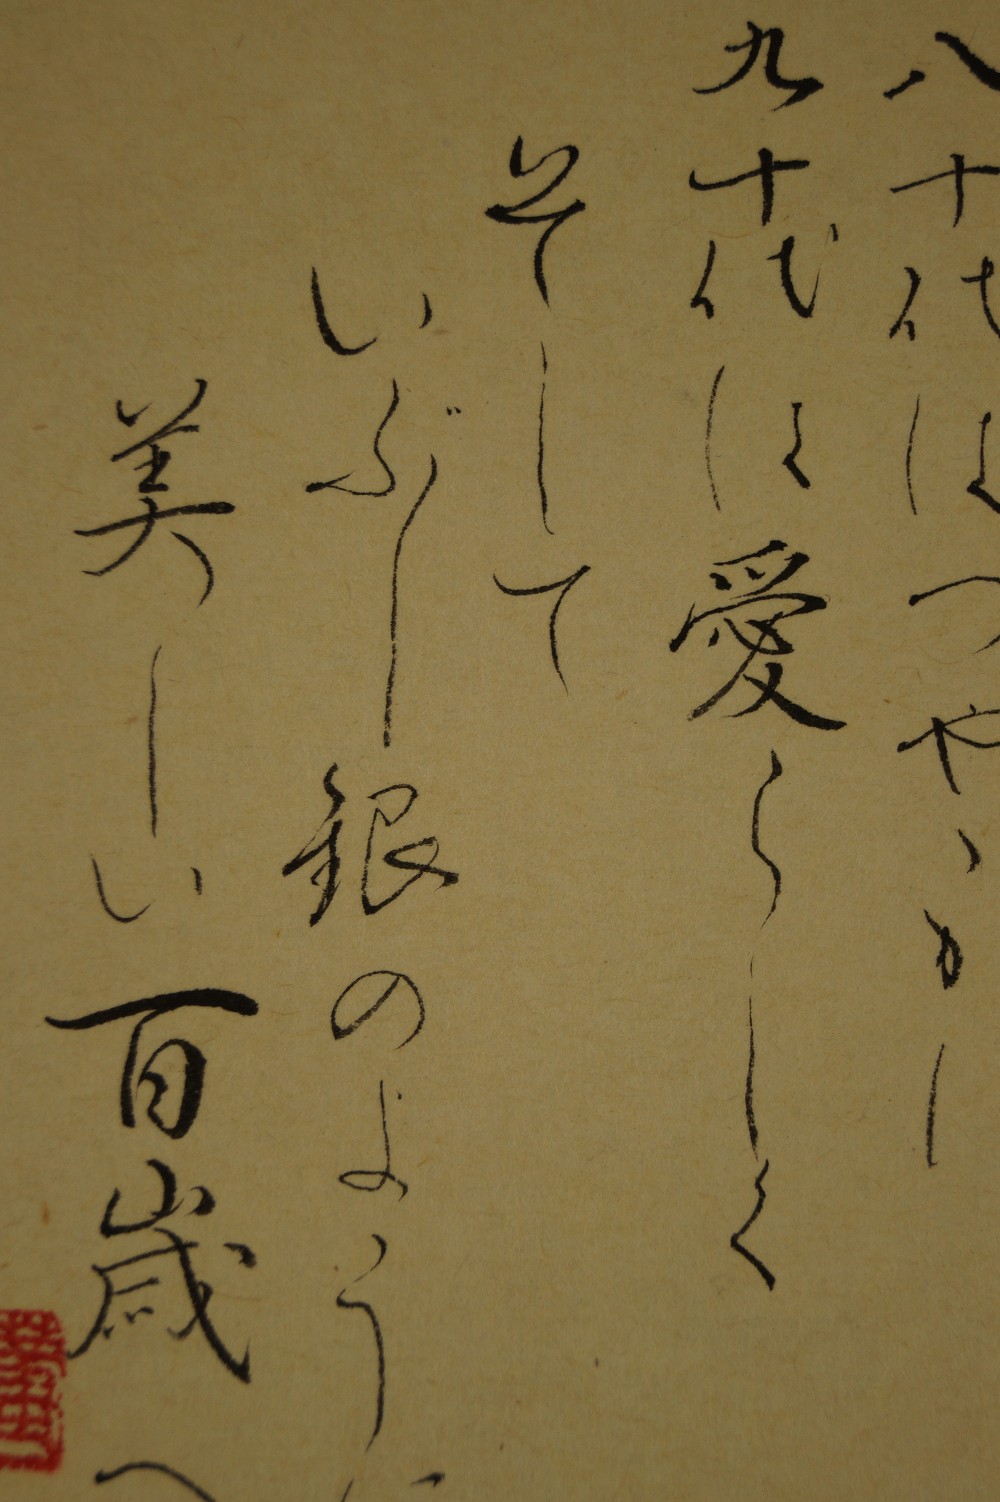 八十代はつやゝかに
九十代は愛らしく
そして
いぶし銀のように
美しい百歳へ